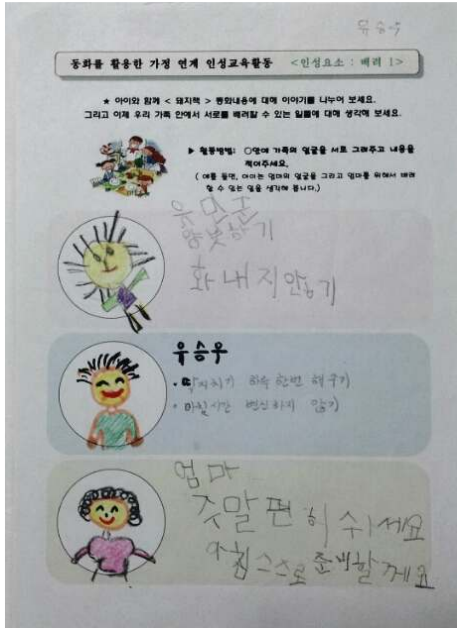 유승우
동화를 활용한 가정 연계 인성교육활동 <인성요소 : 배려 1>
★ 아이와 함께 < 돼지책 > 동화내용에 대해 이야기를 나누어 보세요.
그리고 이제 우리 가족 안에서 서로를 배려할 수 있는 일들에 대해 생각해 보세요.
▶ 활동방법: ○안에 가족의 얼굴을 서로 그려주고 내용을
적어주세요.
( 예를 들면, 아이는 엄마의 얼굴을 그리고 엄마를 위해서 배려
할 수 있는 일을 생각해 봅니다.)
유민준
양보하기
화내지 않기
유승우
· 딱지치기 하루 한번 해주기
· 아침시간 변신하지 않기
엄마
주말 편히 쉬세요
아침 스스로 준비할께요